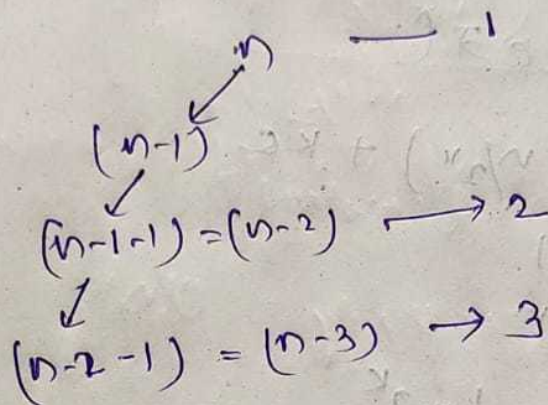 n — 1
(n-1)
(n-1-1) = (n-2) → 2
(n-2-1) = (n-3) → 3